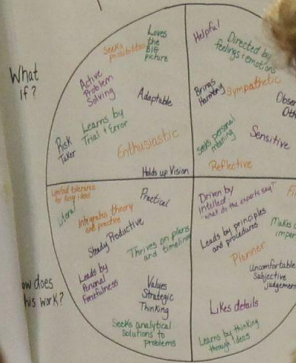 What
if?
Seeks
possibilities
Loves
the
BIG
picture
Active
Problem
Solving
Adaptable
Learns by
Trial & Error
Risk
Taker
Enthusiastic
Holds up Vision
Helpful
Directed by
feelings & emotions
Brings
Harmony
Sympathetic
Obser
Oth
Seeks personal
meaning
Sensitive
Reflective
ow does
his work?
Limited tolerance
for fuzzy ideas
Literal
Practical
Integrates theory
and practice
Steady Productive
Thrives on plans
and timelines
Leads by
Personal
Forcefulness
Values
Strategic
Thinking
Seeks analytical
solutions to
problems
Driven by
intellect
what do the experts say?
Leads by principles
and procedures
Makes
imper
Planner
Uncomfortable
Subjective
judgemen
Likes details
Learns by thinking
through ideas